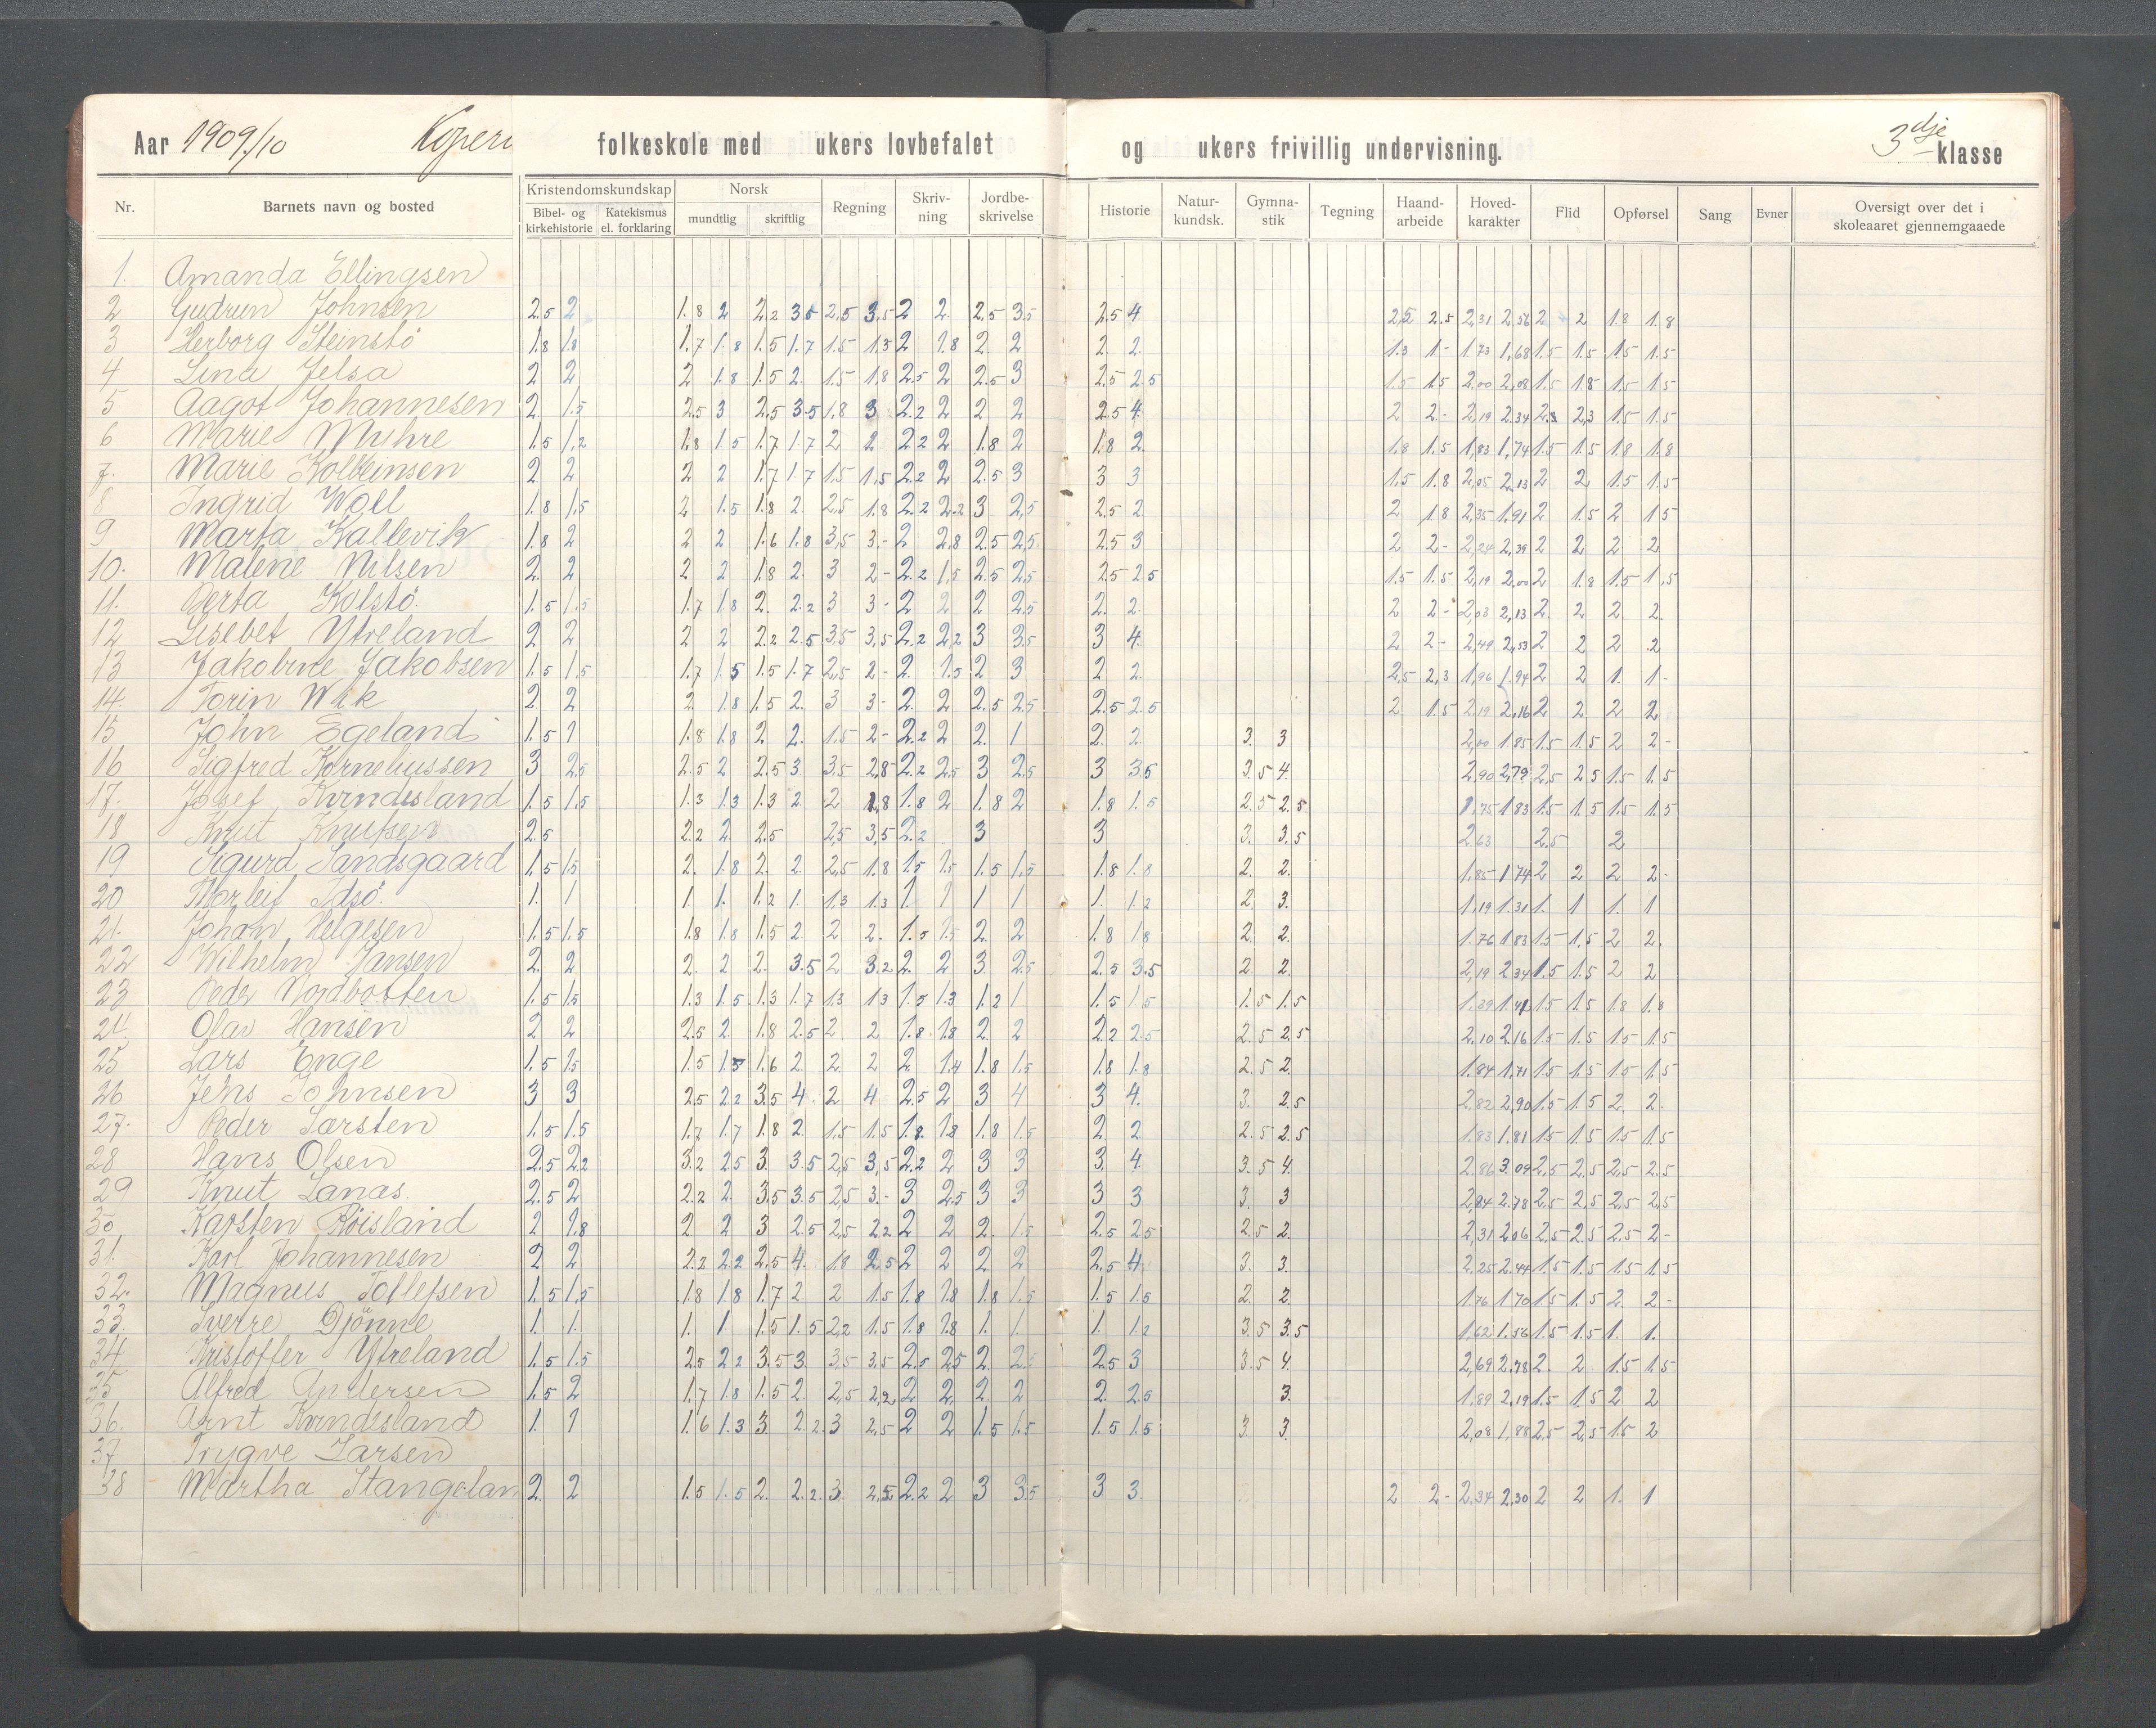 Aar 1909/10 Koperv folkeskole med ukers lovbefalet og ukers frivillig undervisning. 3dje klasse
Nr. Barnets navn og bosted Kristendomskundskap Bibel- og kirkehistorie Katekismus el. forklaring Norsk mundtlig skriftlig Regning Skriv-ning Jordbe-skrivelse Historie Natur-kundsk. Gymna-stik Tegning Haand-arbeide Hoved-karakter Flid Opførsel Sang Evner Oversigt over det i skoleaaret gjennemgaaede
1. Amanda Ellingsen
2 Gudrun Johnsen 2.5 2 1.8 2 2.2 3.5 2,5 3,5 2 2. 2.5 3.5 2.5 4 2,5 2.5 2,31 2,56 2 2 1.8 1.8
3 Herborg Steinstö 1.8 1.8 1.7 1.8 1.5 1.7 1.5 1.3 2 1.8 2. 2 2. 2. 1.3 1- 1.73 1,68 1.5 1.5 1.5 1.5
4 Lina Jelsa 2 2 2 1.8 1.5 2. 1.5 1,8 2.5 2 2.5 3 2.5 2.5 1.5 1.5 2.00 2,08 1.5 1.8 1.5 1.5
5 Aagot Johannesen 2 1.5 2.5 3 2,5 3.5 1.8 3 2.2 2 2 2 2.5 4 2 2- 2,19 2.34 2.3 2,3 1.5 1.5
6 Marie Muhre 1.5 1,2 1.8 1.5 1.7 1.7 2 2 2.2 2 1.8 2 1.8 2. 1.8 1.5 1,83 1,74 1.5 1.5 1.8 1.8
7. Marie Kolbeinsen 2 2 2 2 1.7 1.7 1.5 1,5 2.2 2 2.5 3 3 3 1.5 1.8 2,05 2,13 2 2 1.5 1.5
8 Ingrid Woll 1.8 1,5 2 1.5 1.8 2. 2,5 1.8 2.2 2.2 3 2,5 2.5 2 2 1.8 2,35 1.91 2 1.5 2 1.5
9 Marta Kallevik 1.8 2 2 2 1.6 1.8 3,5 3- 2 2.8 2.5 2,5 2.5 3 2 2- 2,24 2,39 2 2 2 2
10. Malene Nilsen 2. 2 2 2 1.8 2. 3 2- 2.2 1,5 2.5 2.5 2.5 2.5 1.5 1.5 2,19 2.00 2 1.8 1.5 1.5
11. Berta Kolstö. 1.5 1.5 1.7 1.8 2. 2.2 3 3- 2 2 2 2.5 2. 2 2 2- 2,03 2,13 2 2 2. 2.
12 Lisebet Ytreland 2 2 2 2 2.2 2.5 3,5 3,5 2.2 2,2 3 3.5 3 4 2 2- 2,49 2,53 2 2 2 2
13 Jakobine Jakobsen 1.5 1.5 1.7 1.5 1.5 1.7 2,5 2- 2. 1.5 2 3 2 2 2,5 2,3 1,96 1.94 2 2 1. 1-
14. Torin Wik 2 2 2 1.8 1.5 2. 3 3- 2. 2 2.5 2.5 2.5 2.5 2 1.5 2.19 2,16 2 2 2 2
15 John Egeland 1.5 1 1.8 1.8 2 2. 1.5 2- 2.2 2 2. 1 2. 2 3. 3 2,00 1.85 1.5 1.5 2 2-
16 Sigfred Korneliussen 3 2,5 2.5 2 2.5 3 3.5 2,8 2.2 2.5 3 2.5 3 3.5 3.5 4. 2.90 2,79 2,5 2.5 1.5 1.5
17. Josef Kvindesland 1.5 1.5 1.3 1.3 1.3 2 2 1,8 1.8 2 1.8 2 1.8 1.5 2.5 2.5 1,75 1.83 1.5 1.5 1.5 1.5
18 Knut Knutsen 2.5 2.2 2. 2.5 2,5 3,5 2.2 3 3 3. 3.5 2.63 2.5 2
19 Sigurd Sandsgaard 1.5 1.5 2. 1.8 2. 2. 2,5 1.8 1.5 1.5 1.5 1.5 1.8 1.8 2. 2. 1.85 1.74 2 2 2 2-
20 Thorleif Idsö. 1. 1 1. 1. 1.2 1. 1.3 1.3 1 1 1 1 1. 1.2 2. 3. 1,19 1.31 1. 1 1. 1
21. Johan Helgesen 1.5 1.5 1.8 1.8 1.5 2 2 2. 1.5 1.5 2. 2 1.8 1.8 2. 2. 1.76 1.83 1.5 1.5 2 2.
22 Wilhelm Jansen 2. 2. 2. 2 2. 3.5 2 3.2 2. 2 3 2.5 2.5 3.5 2. 2. 2,19 2.34 1.5 1.5 2 2
23 Peder Nordbotten 1.5 1.5 1.3 1.5 1.3 1.7 1.3 1.3 1.5 1.3 1.2 1 1.5 1.5 1.5 1.5 1.39 1.41 1.5 1.5 1.8 1.8
24 Olav Hansen 2 2 2.5 2. 1.8 2.5 2 2 1.8 1.8 2. 2 2.2 2.5 2.5 2.5 2.10 2.16 1.5 1.5 1.5 1.5
25 Lars Enge 1.5 1.5 1.5 1.5 1.6 2 2 2 2 1.4 1.8 1.5 1.8 1.8 2.5 2. 1.84 1,71 1.5 1.5 1.5 1.5
26 Jens Johnsen 3 3 2.5 2.2 3.5 4 2 4 2.5 2 3 4 3 4. 3. 2.5 2.82 2,90 1.5 1.5 2 2.
27. Peder Larsten 1.5 1.5 1.7 1.7 1.8 2. 1.5 1.5 1.8 1.8 1.8 1.5 2. 2 2.5 2.5 1.83 1.81 1.5 1.5 1.5 1.5
28 Hans Olsen 2.5 2.2 3.2 2.5 3. 3.5 2,5 3,5 2.2 2 3 3 3. 4. 3.5 4. 2.86 3.09 2,5 2.5 2,5 2.5
29 Knut Lanas. 2.5 2 2.2 2. 3.5 3.5 2,5 3.- 3 2.5 3 3 3 3 3. 3 2,84 2.78 2,5 2,5 2,5 2,5
30 Karsten Röisland 2 1.8 2 2 3 2.5 2,5 2.2 2 2 2. 1.5 2.5 2.5 2.5 2. 2,31 2.06 2.5 2.5 2.5 2-
31. Karl Johannesen 2 2 2.2 2.2 2.5 4. 1.8 2,5 2 2 2 2 2.5 4 3. 3. 2.25 2.44 1.5 1.5 1.5 1.5
32. Magnus Tollefsen 1.5 1.5 1.8 1.8 1.7 2 2 1.5 1.8 1.8 1.8 1.5 1.5 1.5 2. 2. 1.76 1.70 1.5 1.5 2 2-
33. Sverre Djönne 1. 1. 1. 1 1.5 1.5 2,2 1.5 1.8 1.8 1. 1. 1. 1.2 3.5 3.5 1.62 1.56 1.5 1.5 1. 1.
34 Kristoffer Ytreland 1.5 1.5 2.5 2.2 3.5 3 3.5 3.5 2.5 2.5 2. 2.5 2.5 3 3.5 4. 2,69 2.78 2. 2 1.5 1.5
35 Alfred Andersen 1.5 2 1.7 1.8 1.5 2. 2,5 2,2 2 2. 2. 2 2. 2.5 3. 1.89 2.19 1.5 1.5 2 2
36. Arnt Kvindesland 1. 1 1.6 1.3 3. 2.2. 3 2,5 2 2 1.5 1.5 1.5 1.5 3 3. 2,08 1,88 2,5 2,5 1.5 2
37 Trygve Larsen
38 Martha Stangelan 2. 2 1.5 1.5 2. 2.2. 3. 2,5 2.2 2 3 3.5 3. 3. 2 2- 2,34 2,30 2 2 1. 1